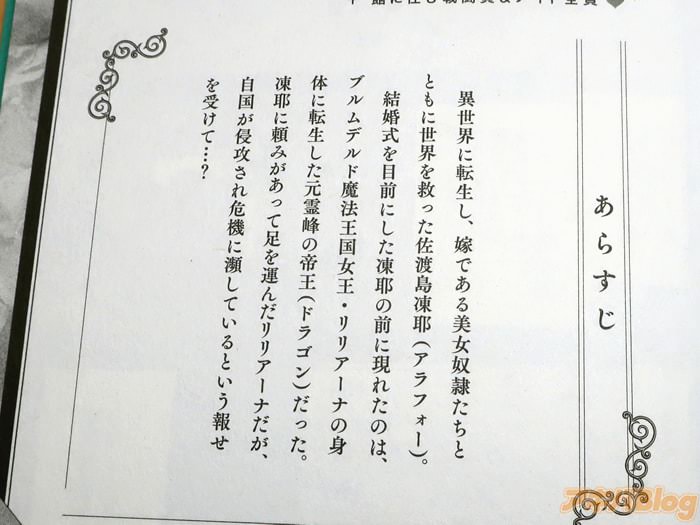 あらすじ
異世界に転生し、嫁である美女奴隷たちと
ともに世界を救った佐渡島凍耶(アラフォー)。
結婚式を目前にした凍耶の前に現れたのは、
ブルムデルド魔法王国女王・リリアーナの身
体に転生した元霊峰の帝王(ドラゴン)だった。
凍耶に頼みがあって足を運んだリリアーナだが、
自国が侵攻され危機に瀕しているという報せ
を受けて…?
アキバBlog